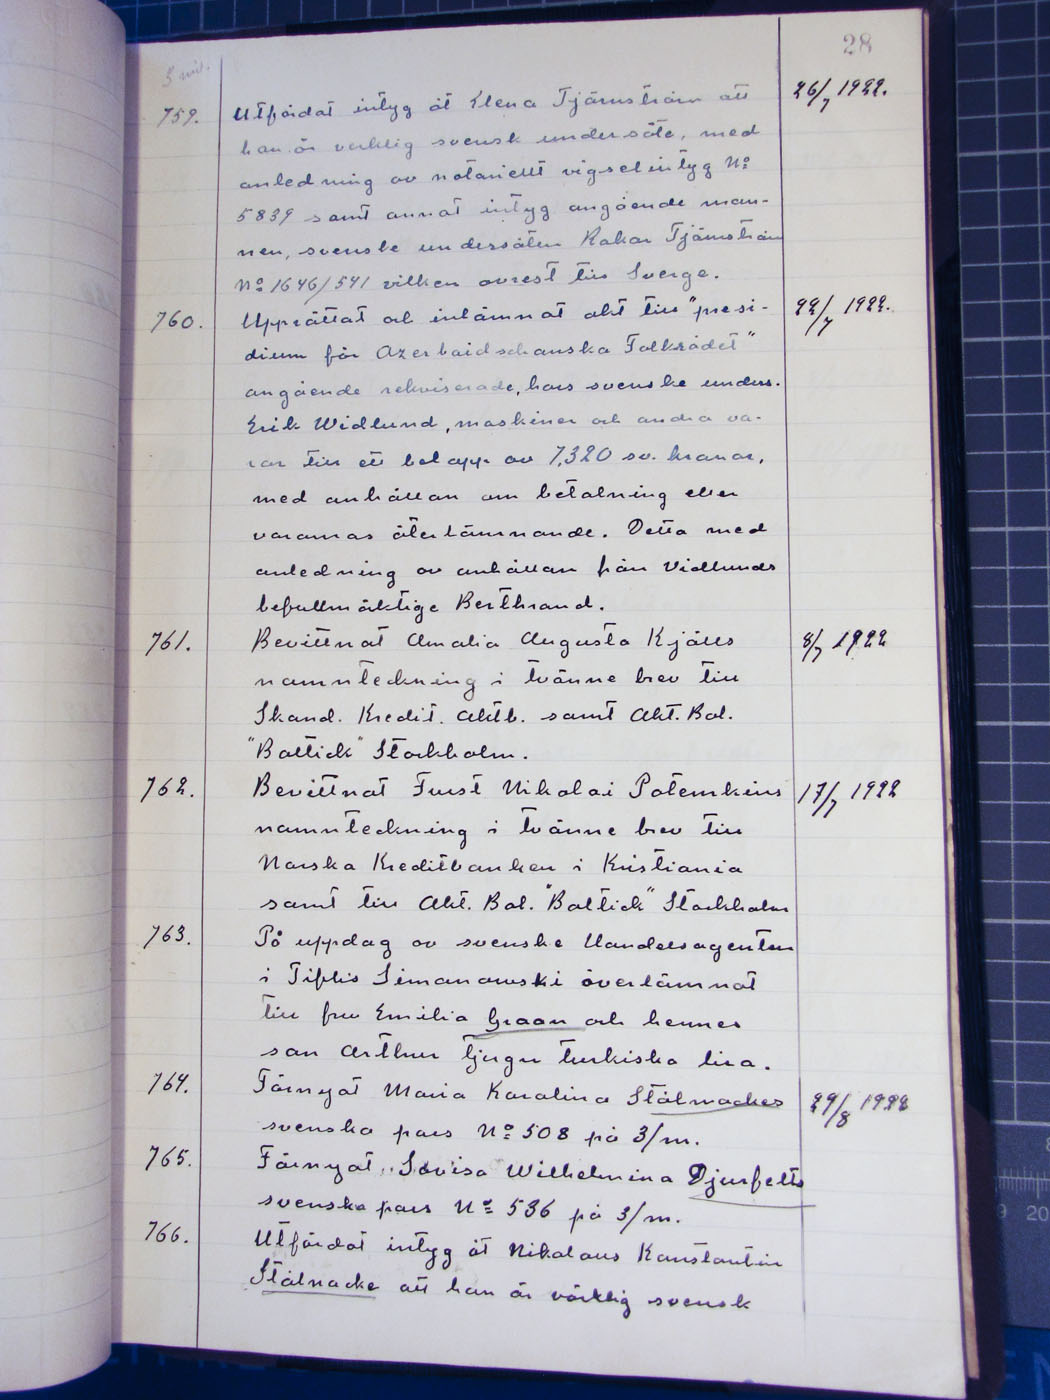 28
759. Utfärdat intyg åt Elena Tjärnström att 26/7 1922.
hon är verklig svensk undersåte, med
anledning av notariellt vigselintyg No
5839 samt annat intyg angående man-
nen, svenske undersåten Kakar Tjärnström
No 1646/541 vilken avrest till Sverge.
760. Upprättat och inlämnat akt till "presi- 22/7 1922.
dium för Azerbaidschanska Folkrådet"
angående rekviserade, hos svenske unders.
Erik Widlund, maskiner och andra va-
ror till ett belopp av 7,320 sv. kronor,
med anhållan om betalning eller
varornas återlämnande. Detta med
anledning av anhållan från Vidlunds
befullmäktige Berthrand.
761. Bevittnat Amalia Augusta Kjälls 8/7 1922
namnteckning i tvänne brev till
Skand. Kredit. Aktb. samt Akt. Bol.
"Baltick" Stockholm.
762. Bevittnat Furst Nikolai Potemkins 17/7 1922
namnteckning i tvänne brev till
Norska Kreditbanken i Kristiania
samt till Akt. Bol. "Baltick" Stockholm
763. På uppdag av svenske Handelsagenten
i Tiflis Simanowski överlämnat
till fru Emilia Graan och hennes
son Arthur tjugu turkiska lira.
764. Förnyat Maria Karolina Stålnackes 29/8 1922
svenska pass No 508 på 3/m.
765. Förnyat Lovisa Wilhelmina Djurfelts
svenska pass No 536 på 3/m.
766. Utfärdat intyg åt Nikolaus Konstantin
Stålnacke att han är värklig svensk